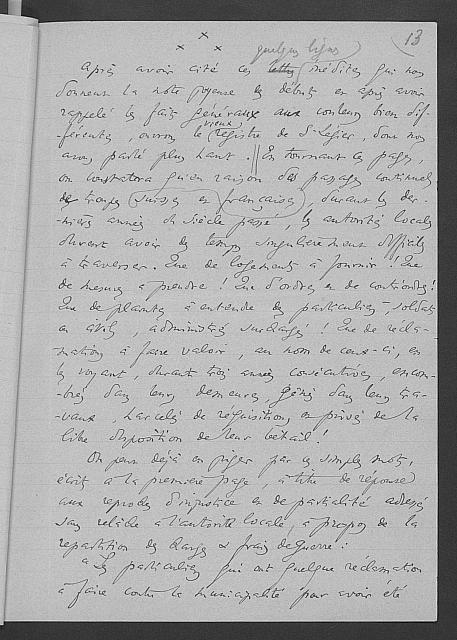 13
x x x
quelques lignes
Après avoir cité ces lettres inédites qui nous
donnent la note joyeuse des débuts et après avoir
rappelé les faits généraux aux couleurs bien dif-
férentes ouvrons le vieux registre de St-Légier, dont nous
avons parlé plus haut. En tournant ces pages,
on constatera qu'en raison des passages continuels
de troupes (suisses et françaises), durant les der-
nières années du siècle passé, les autorités locales
durent avoir des temps singulièrement difficiles
à traverser. Que de logements à fournir! Que
de mesures à prendre! Que d'ordres et de contrordres!
Que de plaintes à entendre des particuliers, soldats
et civils, administrés surchargés! Que de récla-
mations à faire valoir, au nom de ceux-ci, en
les voyant, durant trois années consécutives, encom-
brés dans leurs demeures, gênés dans leurs tra-
vaux, harcelés de réquisitions et privés de la
libre disposition de leur bétail!
On peut déjà en juger par ces simples mots,
écrits à la première page, à titre de réponse
aux reproches d'injustice et de partialité adressés
sans relâche à l'autorité locale, à propos de la
répartition des charges & frais de guerre:
"Les particuliers qui ont quelque réclamation
à faire contre la Municipalité pour avoir été